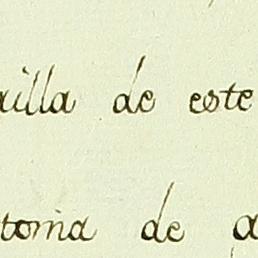 uilla de este
toma de a